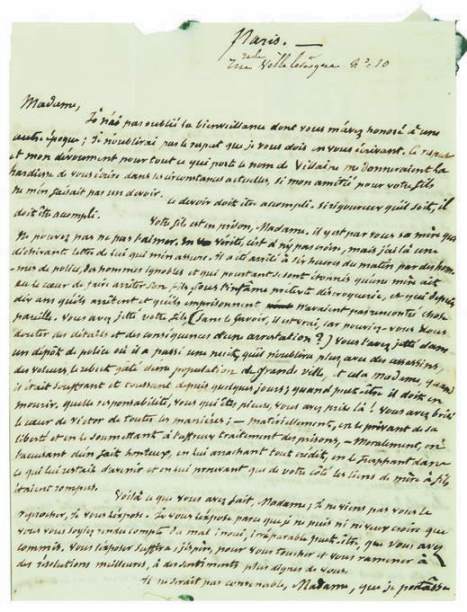 Paris. —
rue Ville lévêque No. 10
Madame,
Je n'ai pas oublié la bienveillance dont vous m'avez honoré à une
autre époque; Je n'oublirai pas le repect que je vous dois en vous écrivant. Ce respect
et mon dévoument pour tout ce qui porte le nom de Villaine me donneraient la
hardiesse de vous écrire dans les circonstances actuelles, si mon amitié pour votre fils
ne m'en faisait pas un devoir. Ce devoir doit être accompli. Si rigoureux qu'il soit, il
doit être accompli.
Votre fils est en prison, Madame. Il y est par vous sa mère qui
ne pouvez pas ne pas l'aimer. En vérité, c'est à n'y pas croire, mais j'ai là une
déchirante lettre de lui qui m'en assure. Il a été arrêté à six heures du matin par des hom-
mes de police, des hommes ignobles et qui pourtant se sont étonnés qu'une mère ait
eu le cœur de faire arrêter son fils sous l'infâme prétexte d'escroquerie, et que depuis
dix ans qu'ils arrêtent et qu'ils emprisonnent n'avaient pas rencontré chose
pareille. Vous avez jetté votre fils (sans le savoir, il est vrai, car pouviez-vous vous
douter des détails et des conséquences d'un arrestation?) Vous l'avez jetté dans
un dépôt de police où il a passé une nuit, qu'il n'oublira plus avec des assassins,
des voleurs le rebut gâté d'une population de grande ville, et cela Madame, quand
il était souffrant et toussant depuis quelques jours; quand peut-être il doit en
mourir. Quelle responsabilité, vous qui êtes pieuse, vous avez prise là! Vous avez brisé
le cœur de Victor de toutes les manières; — matériellement, en le privant de sa
liberté et en le soumettant à l'affreux traitement des prisons, — Moralement, en
l'accusant d'un fait honteux, en lui arrachant tout crédit, en le frappant dans
ce qui lui restait d'avenir et en lui prouvant que de votre côté les liens de mère à fils
étaient rompus.
Voilà ce que vous avez fait, Madame; Je ne viens pas vous le
reprocher, Je vous l'expose. Je vous l'expose parce que je ne puis ni ne veux croire que
vous vous soyiez rendu compte du mal inoui, irréparable peut-être, que vous avez
commis. Vous l'exposer suffira, j'espère, pour vous toucher et vous ramener à
des résolutions meilleures, à des sentiments plus dignes de vous.
Il ne serait pas convenable, Madame, que je